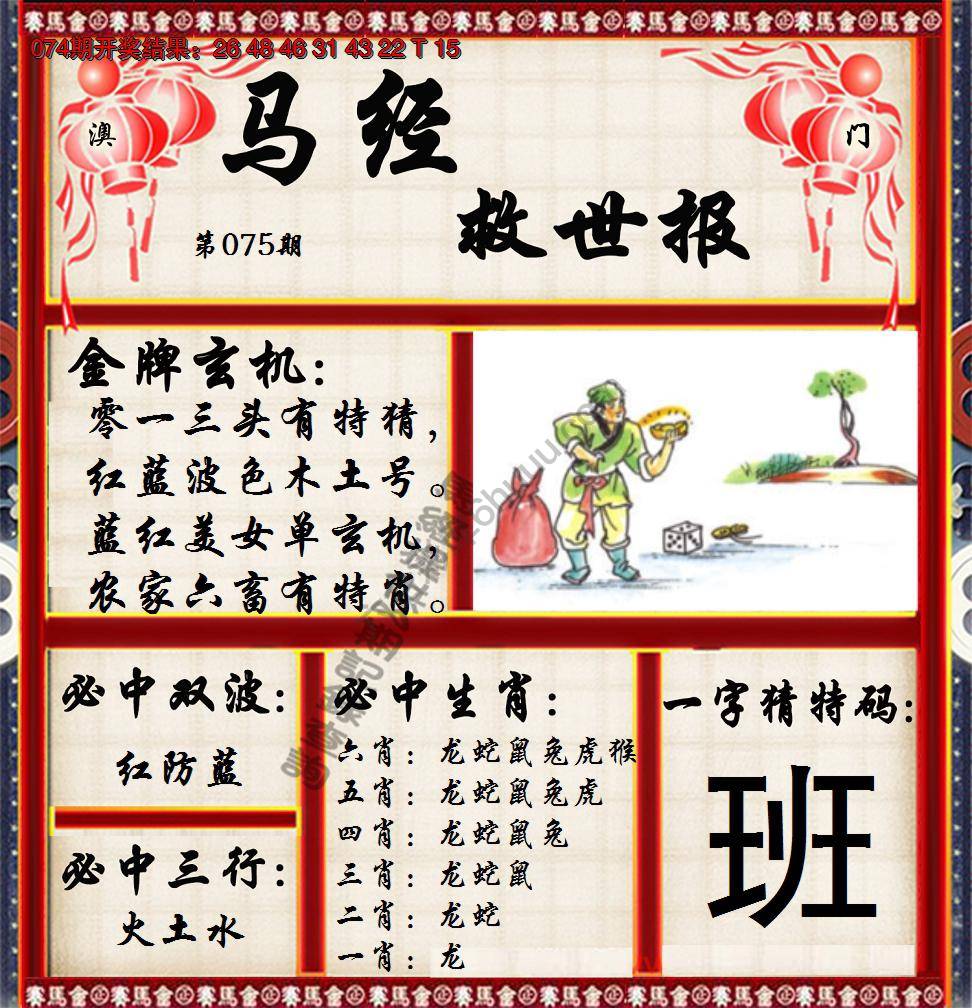 賽馬會
074期开奖结果：26 48 46 31 43 22 T 15
澳
门
马经
救世报
第075期
金牌玄机：
零一三头有特猜，
红蓝波色木土号。
蓝红美女单玄机，
农家六畜有特肖。
必中双波：
红防蓝
必中三行：
火土水
必中生肖：
六肖：龙蛇鼠兔虎猴
五肖：龙蛇鼠兔虎
四肖：龙蛇鼠兔
三肖：龙蛇鼠
二肖：龙蛇
一肖：龙
一字猜特码：
班